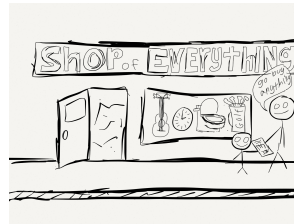 SHOP of EVERYTHING
go buy
anything
GOLF